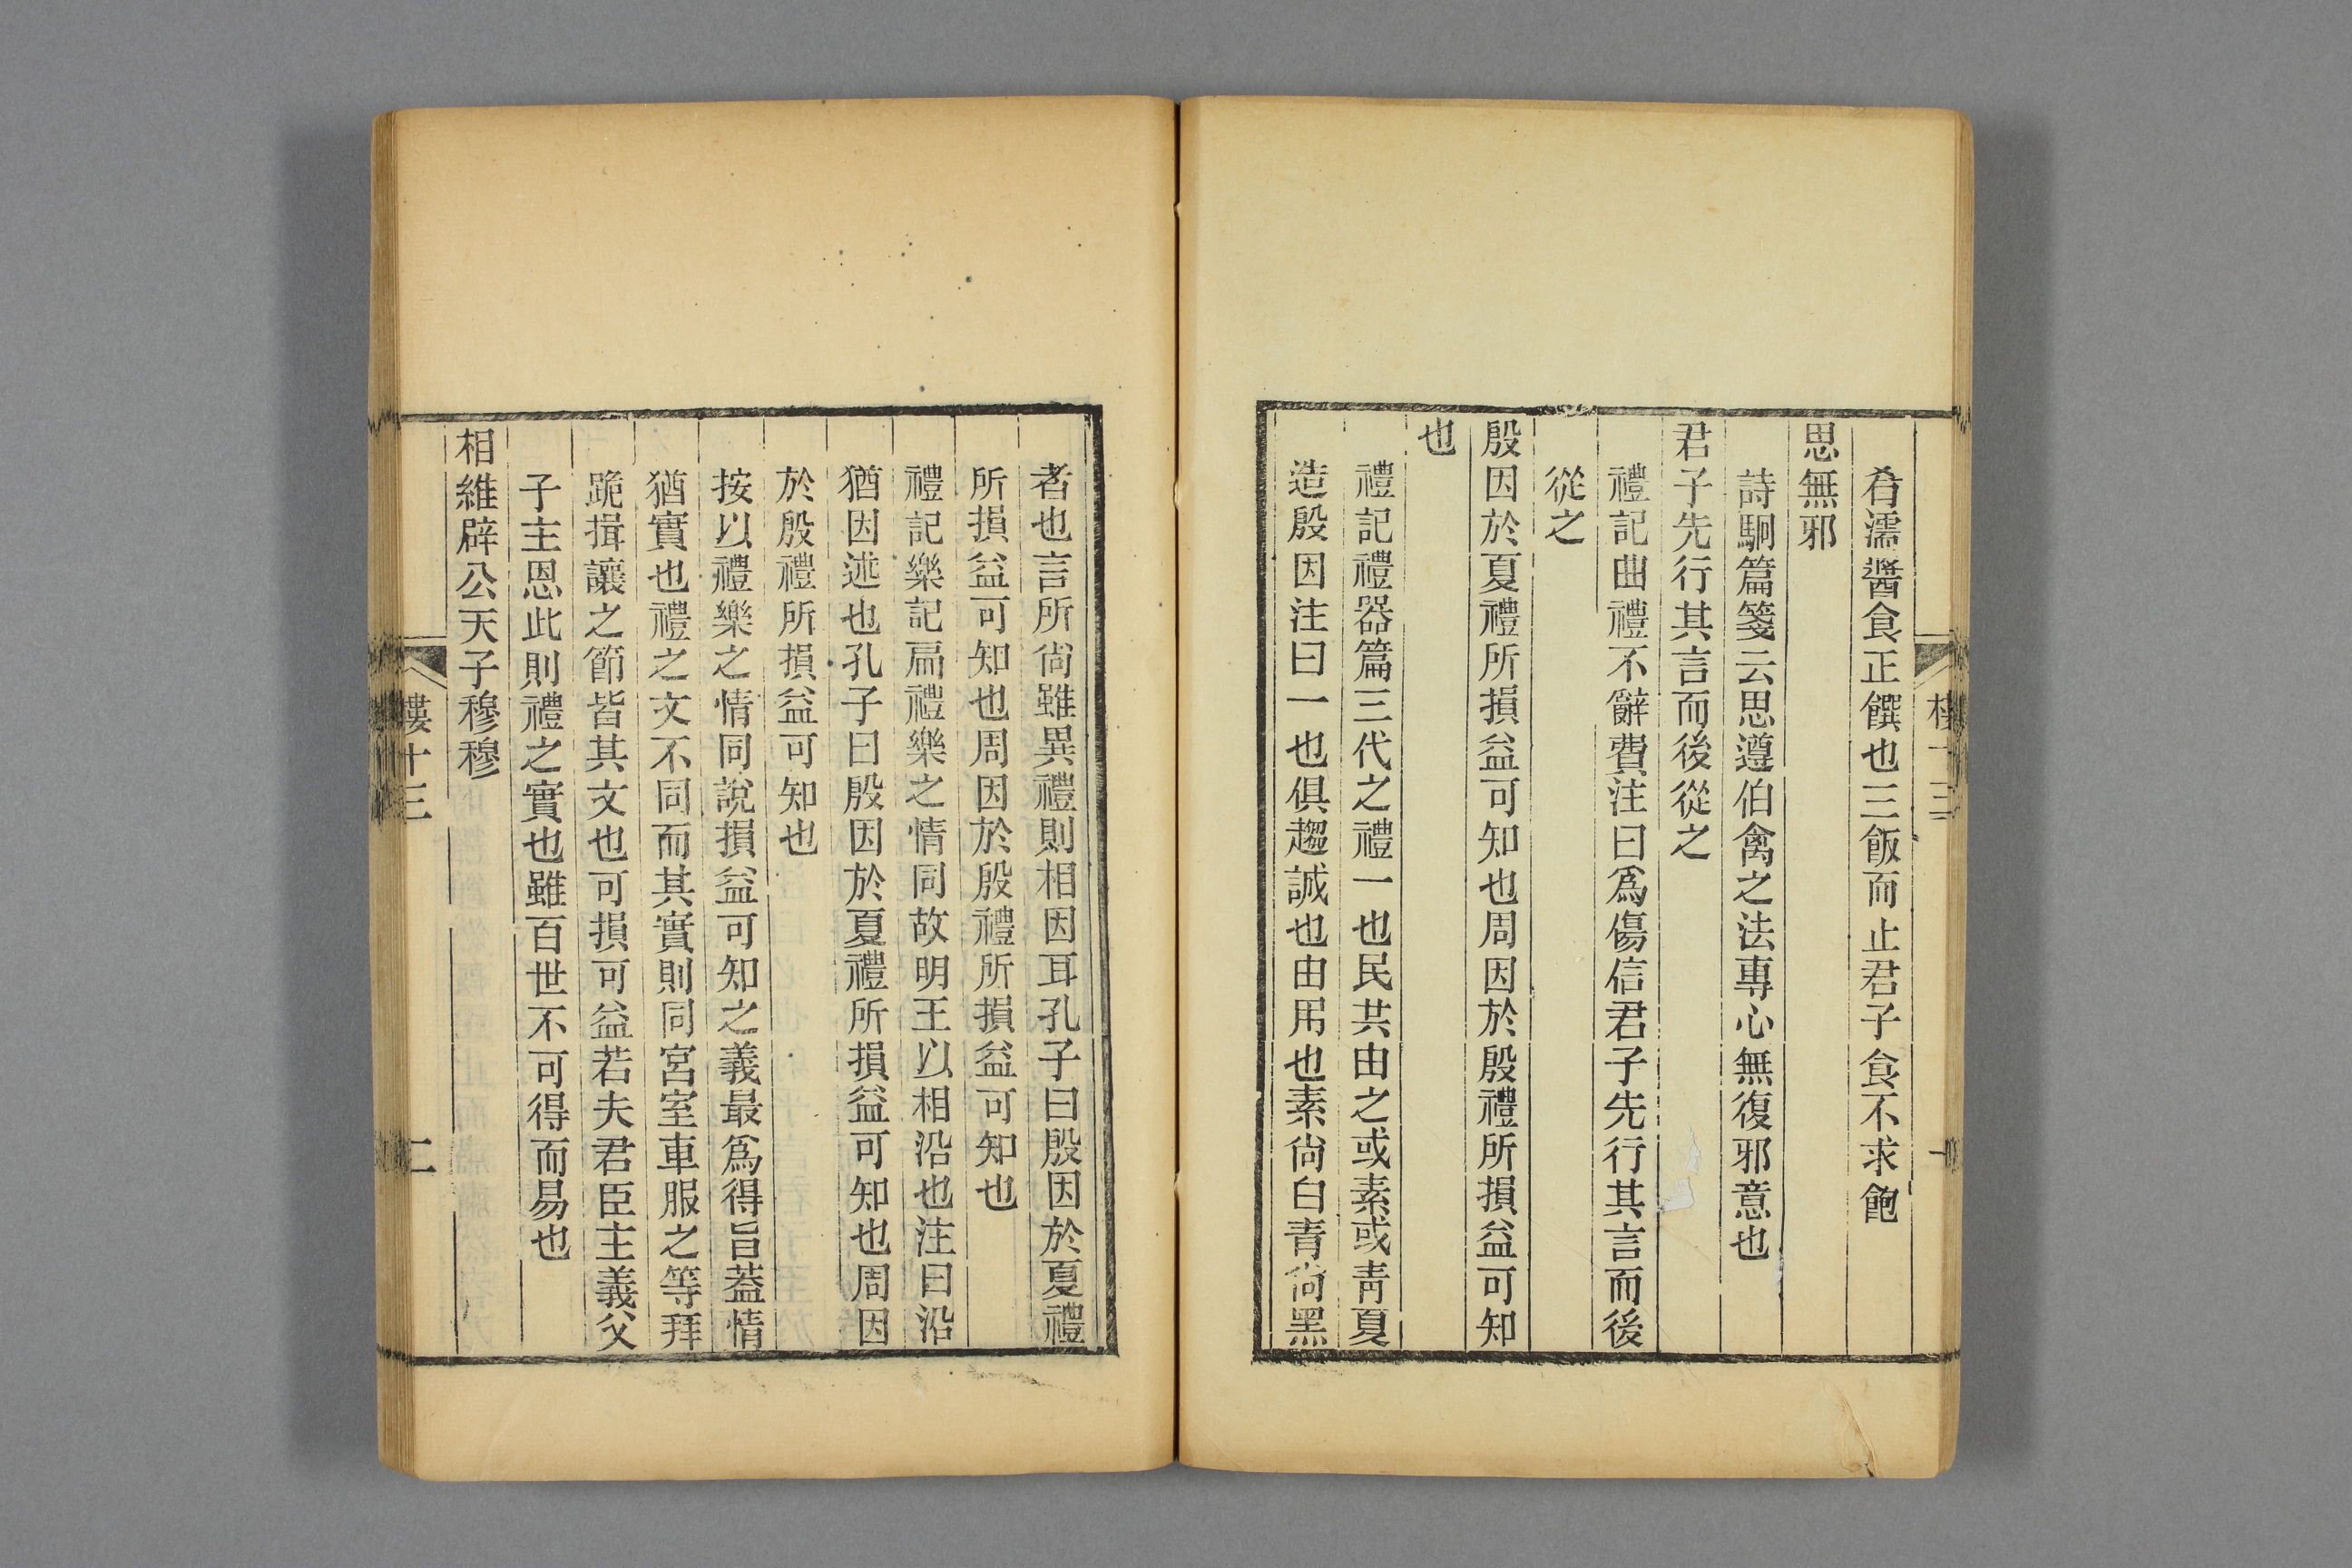 肴濡醬食正饌也三飯而止君子食不求飽
思無邪
詩駉篇箋云思遵伯禽之法專心無復邪意也
君子先行其言而後從之
禮記曲禮不辭費注曰爲傷信君子先行其言而後
從之
殷因於夏禮所損益可知也周因於殷禮所損益可知
也
禮記禮器篇三代之禮一也民共由之或素或靑夏
造殷因注曰一也俱趨誠也由用也素尙白青尙黑
者也言所尙雖異禮則相因耳孔子曰殷因於夏禮
所損益可知也周因於殷禮所損益可知也
禮記樂記扁禮樂之情同故明王以相沿也注曰沿
猶因述也孔子曰殷因於夏禮所損益可知也周因
於殷禮所損益可知也
按以禮樂之情同說損益可知之義最爲得旨葢情
猶實也禮之文不同而其實則同宮室車服之等拜
跪揖讓之節皆其文也可損可益若夫君臣主義父
子主恩此則禮之實也雖百世不可得而易也
相維辟公天子穆穆
樓十三
二